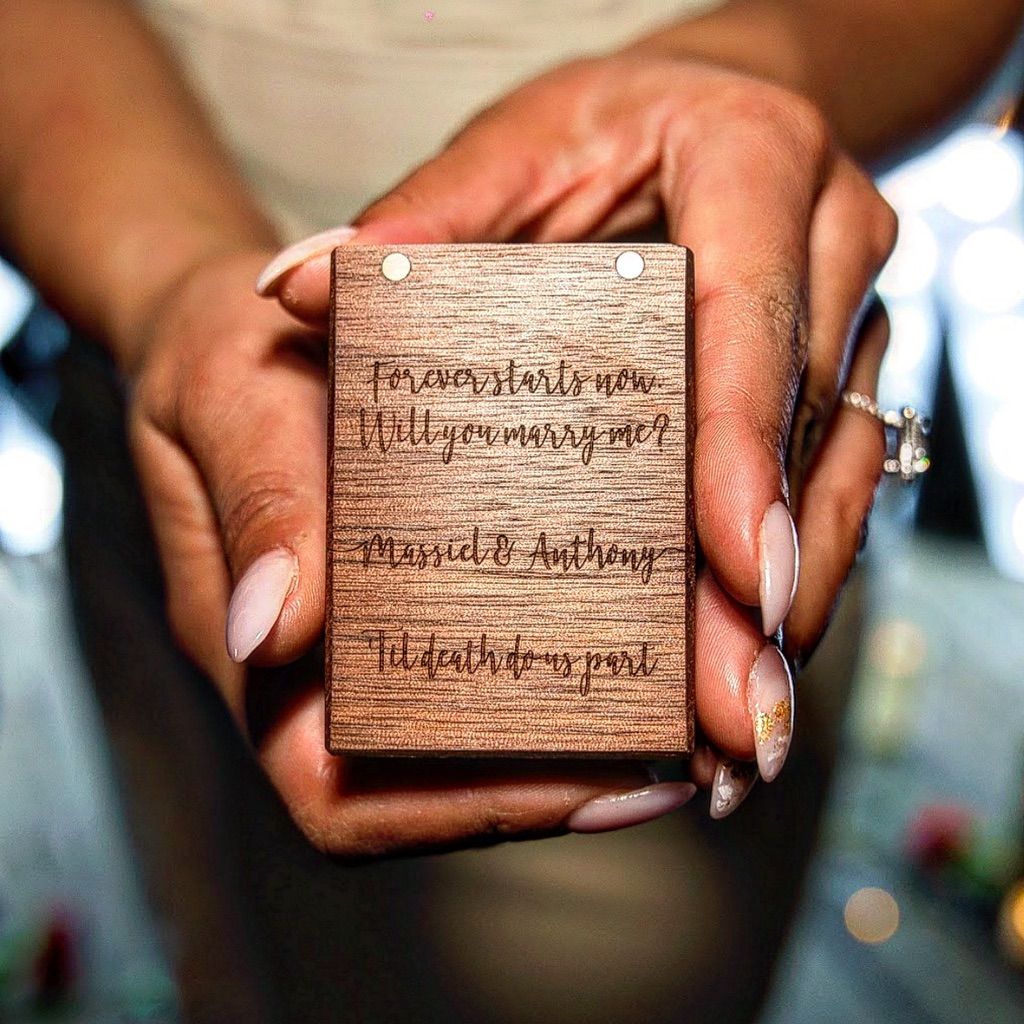 Forever starts now.
Will you marry me?
Massiel & Anthony
'Til death do us part